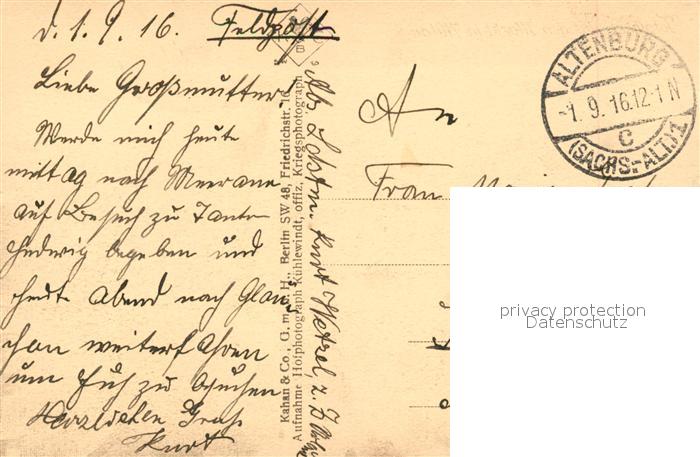 d. 1. 9. 16. Feldpost
Liebe Großmutter!
Werde mich heute
mittag nach Meerane
auf Besuch zu Tante
Hedwig begeben und
heute Abend nach Glau-
chau weiterfahren
um Euch zu besuchen
Herzlichen Gruß
Kurt
Kahan & Co., G.m.b.H., Berlin SW 48, Friedrichstr. 16
Aufnahme Hofphotograph Kühlewindt, offiz. Kriegsphotograph
Abs. Kurt Wetzel, z. Z.
An
Frau
ALTENBURG
-1. 9. 16. 12-1 N
C
(SACHS.-ALT.) 1
privacy protection
Datenschutz